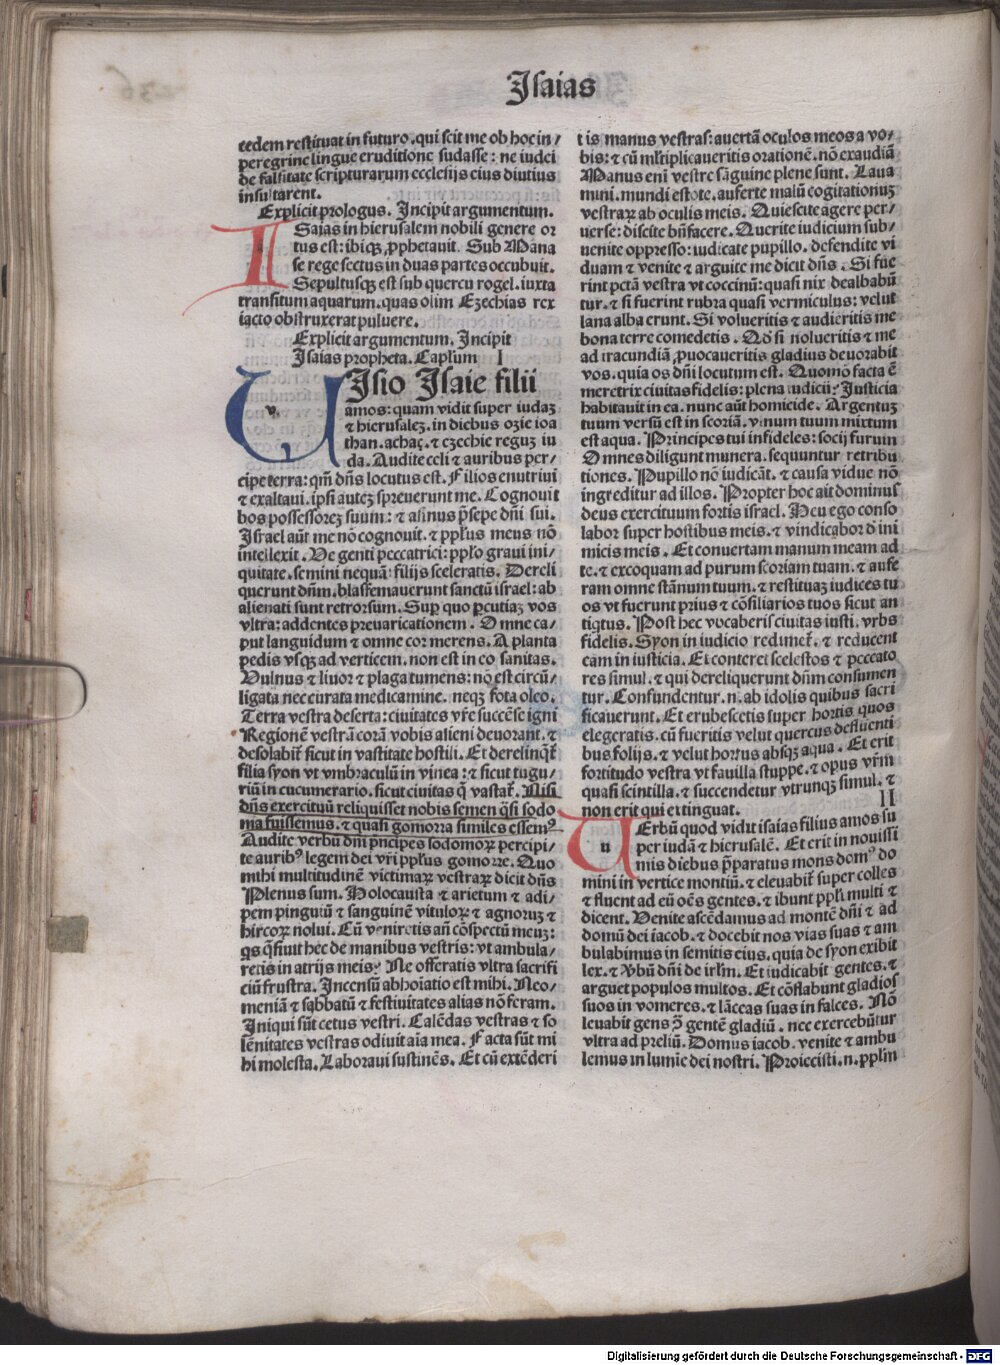 Isaias
eedem restituat in futuro. qui scit me ob hoc in/
peregrine lingue eruditione sudasse: ne iudei
de falsitate scripturarum ecclesijs eius diutius
insultarent.
Explicit prologus. Incipit argumentum.
ISaias in hierusalem nobili genere or
tus est: ibiqꝫ ꝓphetauit. Sub Mana
se rege sectus in duas partes occubuit.
Sepultusqꝫ est sub quercu rogel. iuxta
transitum aquarum. quas olim Ezechias rex
iacto obstruxerat puluere.
Explicit argumentum. Incipit
Isaias propheta. Caplum I
VIsio Isaie filii
amos: quam vidit super iudaꝫ
⁊ hierusaleꝫ. in diebus ozie ioa
than. achaꝫ. ⁊ ezechie reguꝫ iu
da. Audite celi ⁊ auribus per/
cipe terra: qm̄ dn̄s locutus est. Filios enutriui
⁊ exaltaui. ipsi auteꝫ spreuerunt me. Cognouit
bos possessoreꝫ suum: ⁊ asinus p̄sepe dn̄i sui.
Israel aūt me nō cognouit. ⁊ pplūs meus nō
intellexit. Ve genti peccatrici: pplo graui ini/
quitate. semini nequā: filijs sceleratis. Dereli
querunt dn̄m. blasfemauerunt sanctū israel: ab
alienati sunt retrorsum. Suꝑ quo ꝑcutiaꝫ vos
vltra: addentes preuaricationem. Omne ca/
put languidum ⁊ omne cor merens. A planta
pedis vsqꝫ ad verticem. non est in eo sanitas.
Vulnus ⁊ liuor ⁊ plaga tumens: nō est circū/
ligata nec curata medicamine. neqꝫ fota oleo.
Terra vestra deserta: ciuitates vr̄e succēse igni
Regionē vestrā corā vobis alieni deuorant. ⁊
desolabit̄ sicut in vastitate hostili. Et derelinq̄t̄
filia syon vt vmbraculū in vinea: ⁊ sicut tugu/
riū in cucumerario. sicut ciuitas q̄ vastat̄. Nisi
dn̄s exercituū reliquisset nobis semen q̄si sodo
ma fuissemus. ⁊ quasi gomorra similes essemꝰ
Audite verbū dn̄i pn̄cipes sodomoꝝ percipi/
te auribꝰ legem dei vr̄i pplūs gomorre. Quo
mihi multitudinē victimaꝝ vestraꝝ dicit dn̄s
Plenus sum. Holocausta ⁊ arietum ⁊ adi/
pem pinguiū ⁊ sanguinē vituloꝝ ⁊ agnoruꝫ ⁊
hircoꝝ nolui. Cū veniretis an̄ cōspectū meuꝫ:
qs q̄siuit hec de manibus vestris: vt ambula/
retis in atrijs meis? Ne offeratis vltra sacrifi
ciū frustra. Incensū abhoīatio est mihi. Neo/
meniā ⁊ sabbatū ⁊ festiuitates alias nō feram.
Iniqui sūt cetus vestri. Calēdas vestras ⁊ so
lēnitates vestras odiuit aīa mea. Facta sūt mi
hi molesta. Laboraui sustinēs. Et cū extēderi
tis manus vestras: auertā oculos meos a vo/
bis: ⁊ cū mlt̄iplicaueritis orationē. nō exaudiā
Manus enī vestre sāguine plene sunt. Laua
mini. mundi estote. auferte malū cogitationuꝫ
vestraꝝ ab oculis meis. Quiescite agere per/
uerse: discite bn̄facere. Querite iudicium sub/
uenite oppresso: iudicate pupillo. defendite vi
duam ⁊ venite ⁊ arguite me dicit dn̄s. Si fue
rint pctā vestra vt coccinū: quasi nix dealbabū
tur. ⁊ si fuerint rubra quasi vermiculus: velut
lana alba erunt. Si volueritis ⁊ audieritis me
bona terre comedetis. Qd̄ si nolueritis ⁊ me
ad iracundiā ꝓuocaueritis gladius deuorabit
vos. quia os dn̄i locutum est. Quomō facta ē
meretrix ciuitas fidelis: plena iudicii? Iusticia
habitauit in ea. nunc aūt homicide. Argentuꝫ
tuum versū est in scoriā. vinum tuum mixtum
est aqua. Principes tui infideles: socij furum
Omnes diligunt munera. sequuntur retribu
tiones. Pupillo nō iudicāt. ⁊ causa vidue nō
ingreditur ad illos. Propter hoc ait dominus
deus exercituum fortis israel. Heu ego conso
labor super hostibus meis. ⁊ vindicabor d̄ ini
micis meis. Et conuertam manum meam ad
te. ⁊ excoquam ad purum scoriam tuam. ⁊ aufe
ram omne stānum tuum. ⁊ restituaꝫ iudices tu
os vt fuerunt prius ⁊ cōsiliarios tuos sicut an
tiqtus. Post hec vocaberis ciuitas iusti. vrbs
fidelis. Syon in iudicio redimet̄. ⁊ reducent
eam in iusticia. Et conteret scelestos ⁊ peccato
res simul. ⁊ qui dereliquerunt dn̄m consumen
tur. Confundentur .n. ab idolis quibus sacri
ficauerunt. Et erubescetis super hortis quos
elegeratis. cū fueritis velut quercus defluenti
bus folijs. ⁊ velut hortus absqꝫ aqua. Et erit
fortitudo vestra vt fauilla stuppe. ⁊ opus vr̄m
quasi scintilla. ⁊ succendetur vtrunqꝫ simul. ⁊
non erit qui extinguat. II
VErbū quod vidit isaias filius amos su
per iudā ⁊ hierusalē. Et erit in nouissi
mis diebus p̄paratus mons domꝰ do
mini in vertice montiū. ⁊ eleuabit̄ super colles
⁊ fluent ad eū oēs gentes. ⁊ ibunt ppli multi ⁊
dicent. Venite ascēdamus ad montē dn̄i ⁊ ad
domū dei iacob. ⁊ docebit nos vias suas ⁊ am
bulabimus in semitis eius. quia de syon exibit
lex. ⁊ v̄bū dn̄i de irlm̄. Et iudicabit gentes. ⁊
arguet populos multos. Et cōflabunt gladios
suos in vomeres. ⁊ lāceas suas in falces. Nō
leuabit gens ↄ̄ gentē gladiū. nec exercebūtur
vltra ad preliū. Domus iacob. venite ⁊ ambu
lemus in lumīe dei nostri. Proiecisti .n. pplm̄
Digitalisierung gefördert durch die Deutsche Forschungsgemeinschaft - DFG